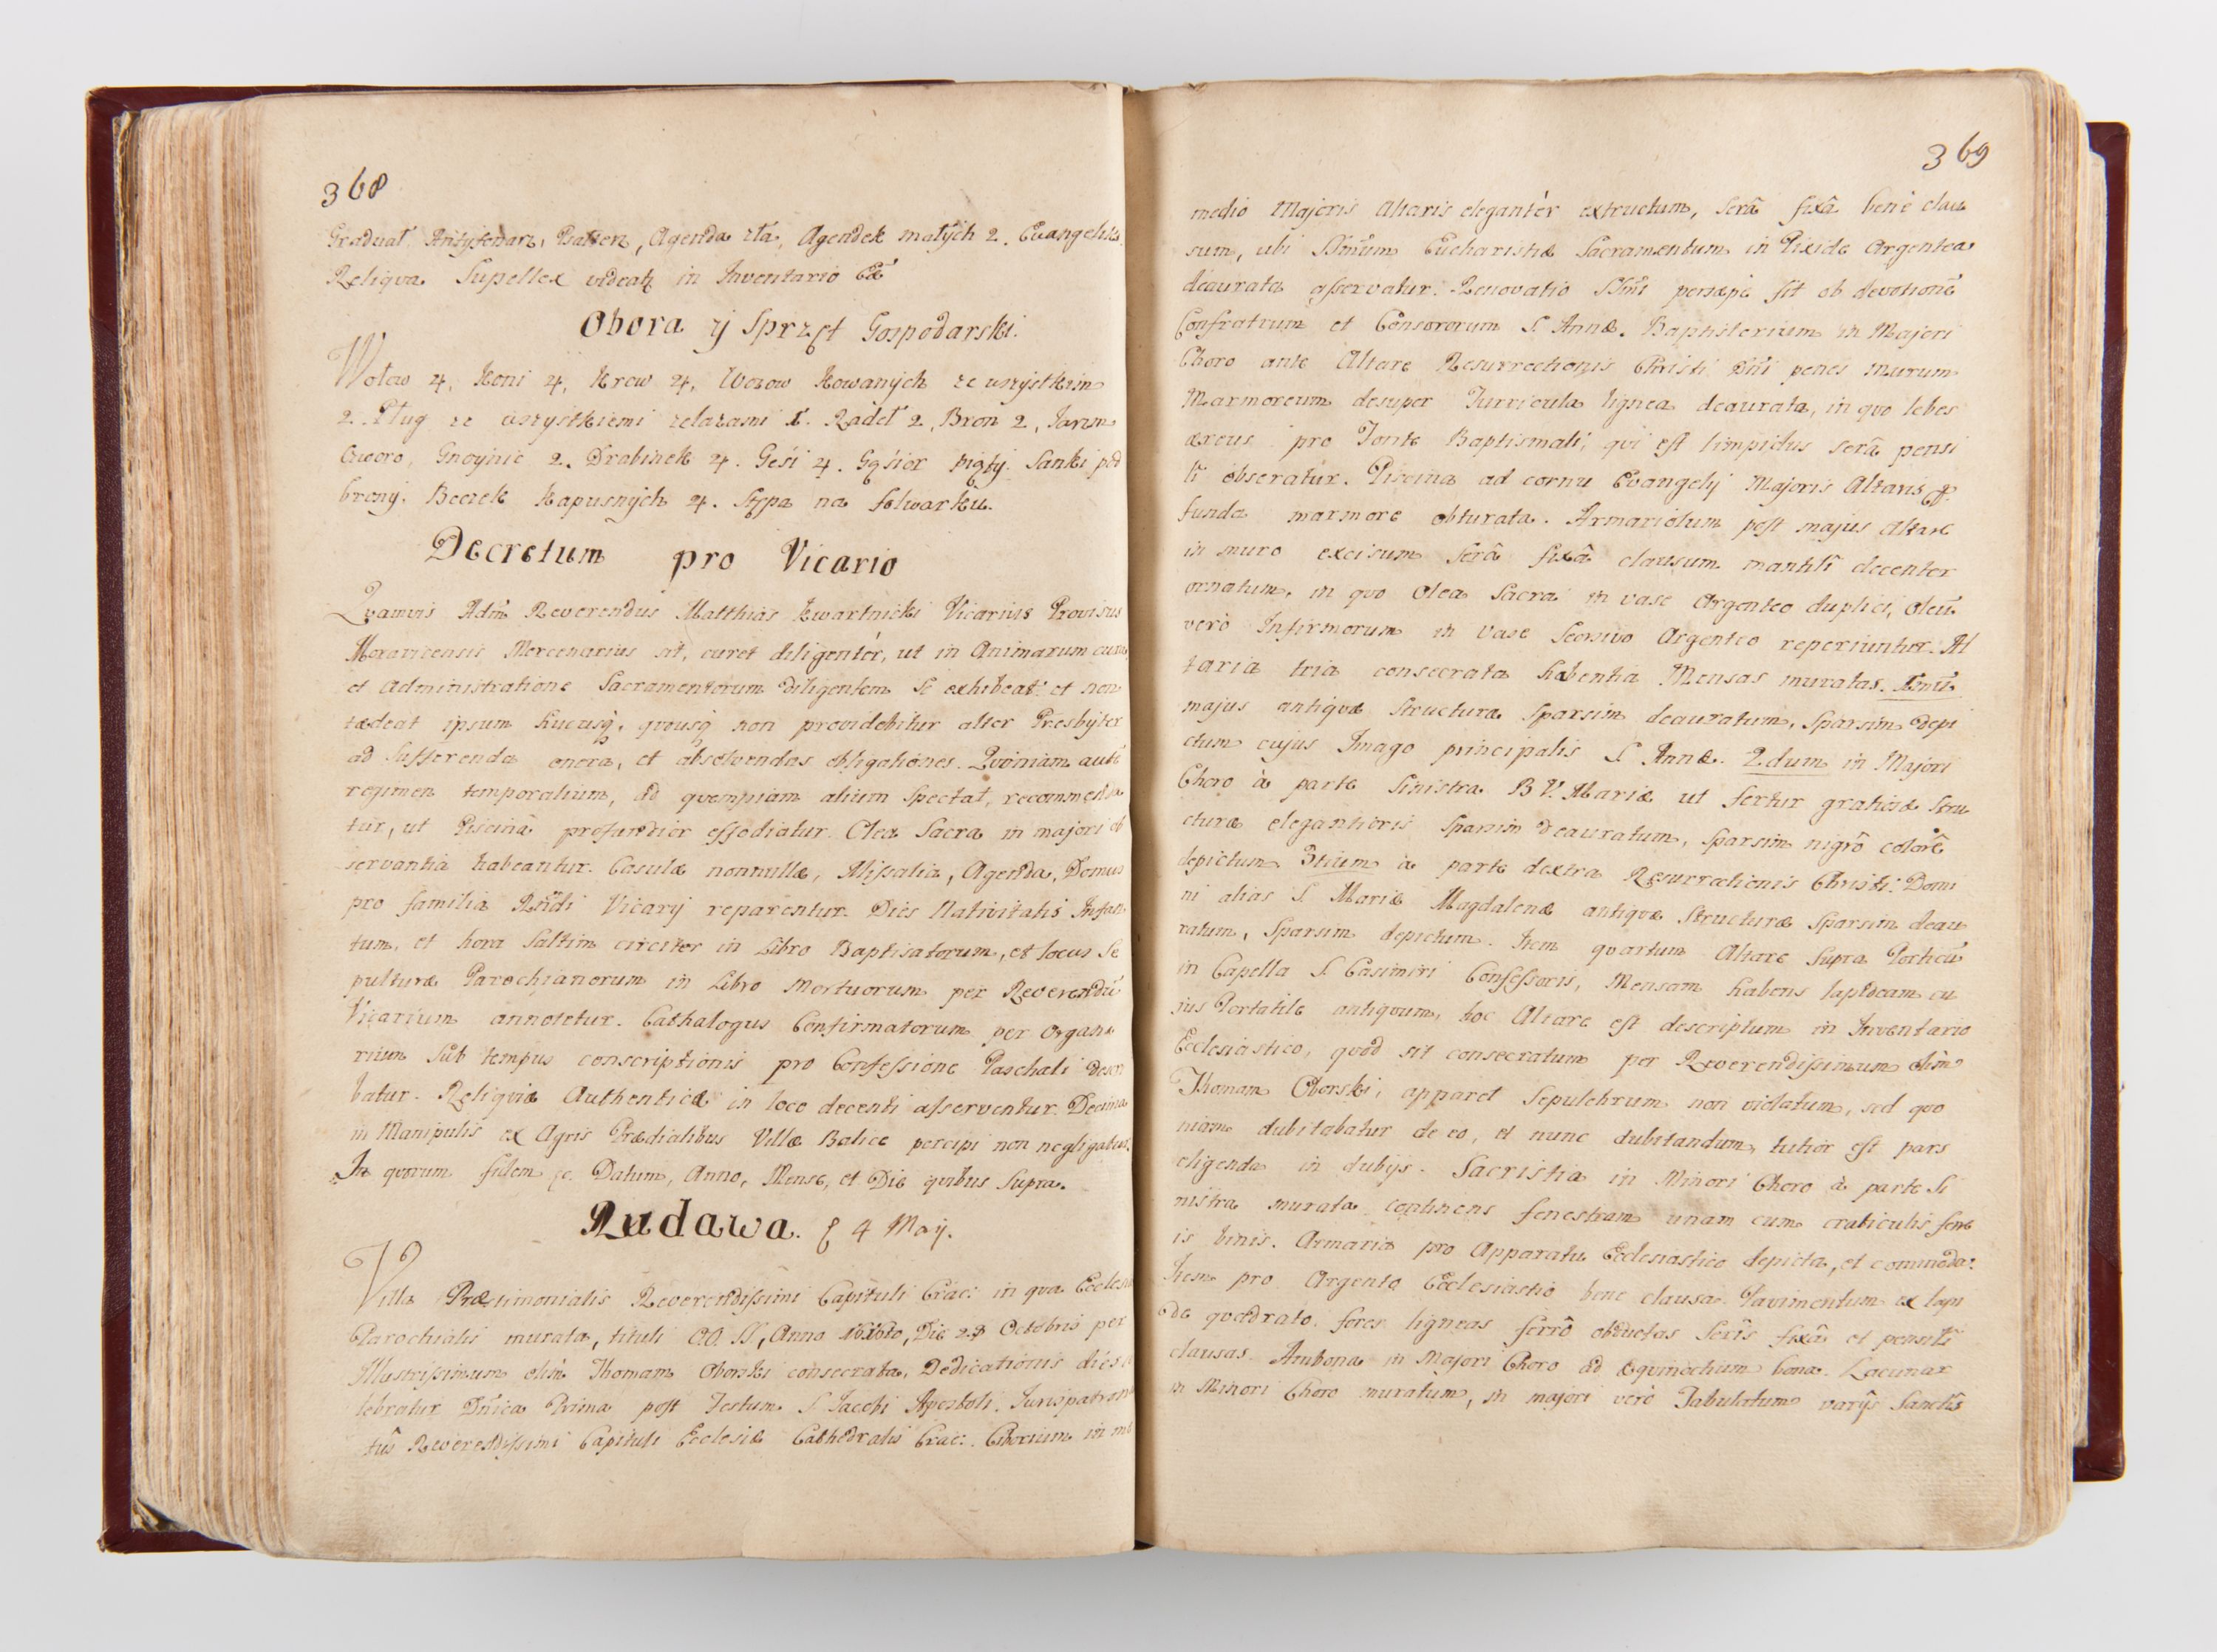 368
Graduał, Antyfonarz, Psałterz, Agenda zła, Agendek małych 2. Evangelik
Reliqva Supellex videatur in Inventario
Obora ÿ Sprzęt Gospodarski.
Wołow 4, Koni 4, Krow 4, Wozow kowanÿch ze wszystkim
2. Pług ze wszystkiemi zelazami 1. Radeł 2, Bron 2, Jarzm
czworo, Gnoynie 2. Drabinek 4. Gęsi 4. Gąsior piątÿ. Sanki pod
bronÿ. Beczek kapusnÿch 4. Stępa na folwarku.
Decretum pro Vicario
Qvamvis Adm̃ Reverendus Matthias Kwartnicki Vicarius Provisus
Moravicensis Mercenarius sit, curet diligentèr, ut in Animarum cura
et Administratione Sacramentorum diligentem se exhibeat: et non
tædeat ipsum hucusq̃, qvousq̃ non providebitur alter Presbÿter
ad Sufferenda onera, et absolvendas obligationes. Qvoniam aut̃e
regimen temporalium, ad qvempiam alium Spectat, recommenda
tur, ut Piscina profundior effodiatur. Olea Sacra in majori ob
servantia habeantur. Casulæ nonnullæ, Missalia, Agenda, Domus
pro familia Rñdi Vicarij reparentur. Dies Nativitatis Infan
tum, et hora Saltim circiter in Libro Baptisatorum, et locus Se
pulturæ Parochianorum in Libro Mortuorum per Reverendũ
Vicarium annotetur. Cathalogus Confirmatorum per Organa
rium Sub tempus conscriptionis pro Confessione Paschali descri
batur. Reliqviæ Authenticæ in loco decenti asserventur. Decima
in Manipulis ex Agris Prædialibus Villæ Balice percipi non negligatur.
In qvorum fidem &c. Datum, Anno, Mense, et Die qvibus Supra.
Rudawa. 4 Maÿ.
Villa Præstimonialis Reverendissimi Capituli Crac: in qva Ecclesia
Parochialis murata, tituli OO. SS, Anno Die 28 Octobris per
Illustrissimum olim Thomam Oborski consecrata, Dedicationis dies ce
lebratur Dñica Prima post Festum S. Jacobi Apostoli. Jurispatrona
tûs Reverendissimi Capituli Ecclesiæ Cathedralis Crac: Ciborium in
369
medio Majoris Altaris elegantèr extructum, Serâ fixâ benè clau
sum, ubi SSmum Eucharistiæ Sacramentum in Pixide Argentea
deaurata asservatur. Renovatio SSmi persæpè fit ob devotionẽ
Confratrum et Consororum S. Annæ. Baptisterium in Majori
Choro ante Altare Resurrectionis Christi Dñi penes murum
Marmoreum desuper Turricula lignea deaurata, in qvo lebes
æreus pro Fonte Baptismali, qvi est limpidus serâ pensi
li obseratur. Piscina ad cornu Evangelij Majoris Altaris
funda marmore obturata. Armariolum post majus Altare
in muro excisum Serâ fixâ clausum mantili decenter
ornatum, in qvo Olea Sacra in vase Argenteo duplici, Oleũ
verò Infirmorum in Vase Seorsivo Argenteo reperiuntur. Al
taria tria consecrata habentia Mensas muratas. 1mũ
majus antiqvæ Structuræ Sparsim deauratum, Sparsim depi
ctum cujus Imago principalis S. Annæ. 2dum in Majori
Choro à parte Sinistra B.V. Mariæ ut fertur gratiosæ Stru
cturæ elegantioris Sparsim deauratum, Sparsim nigrô colorê
depictum. 3tium a parte dextra Resurrectionis Christi Domi
ni alias S. Mariæ Magdalenæ antiqvæ Structuræ Sparsim deau
ratum, Sparsim depictum. Item qvartum Altare Supra Porticũ
in Capella S. Casimiri Confessoris, Mensam habens lapideam cu
jus Portatile antiqvum, hoc Altare est descriptum in Inventario
Ecclesiastico, qvod sit consecratum per Reverendissimum olim
Thomam Oborski, apparet Sepulchrum non violatum, sed qvo
niam dubitabatur de eo, et nunc dubitandum, tutior est pars
eligenda in dubijs. Sacristia in Minori Choro à parte Si
nistra murata continens fenestram unam cum craticulis ferre
is binis. Armaria pro Apparatu Ecclesiastico depicta, et commoda:
Item pro Argento Ecclesiastico bene clausa. Pavimentum ex lapi
de qvadrato, fores ligneas ferrô obductas Serîs fixâ et pensili
clausas. Ambona in Majori Choro ad Æqvinoctium bona. Lacunar
in Minori Choro muratum, in majori verò Tabulatum varijs Sanctis